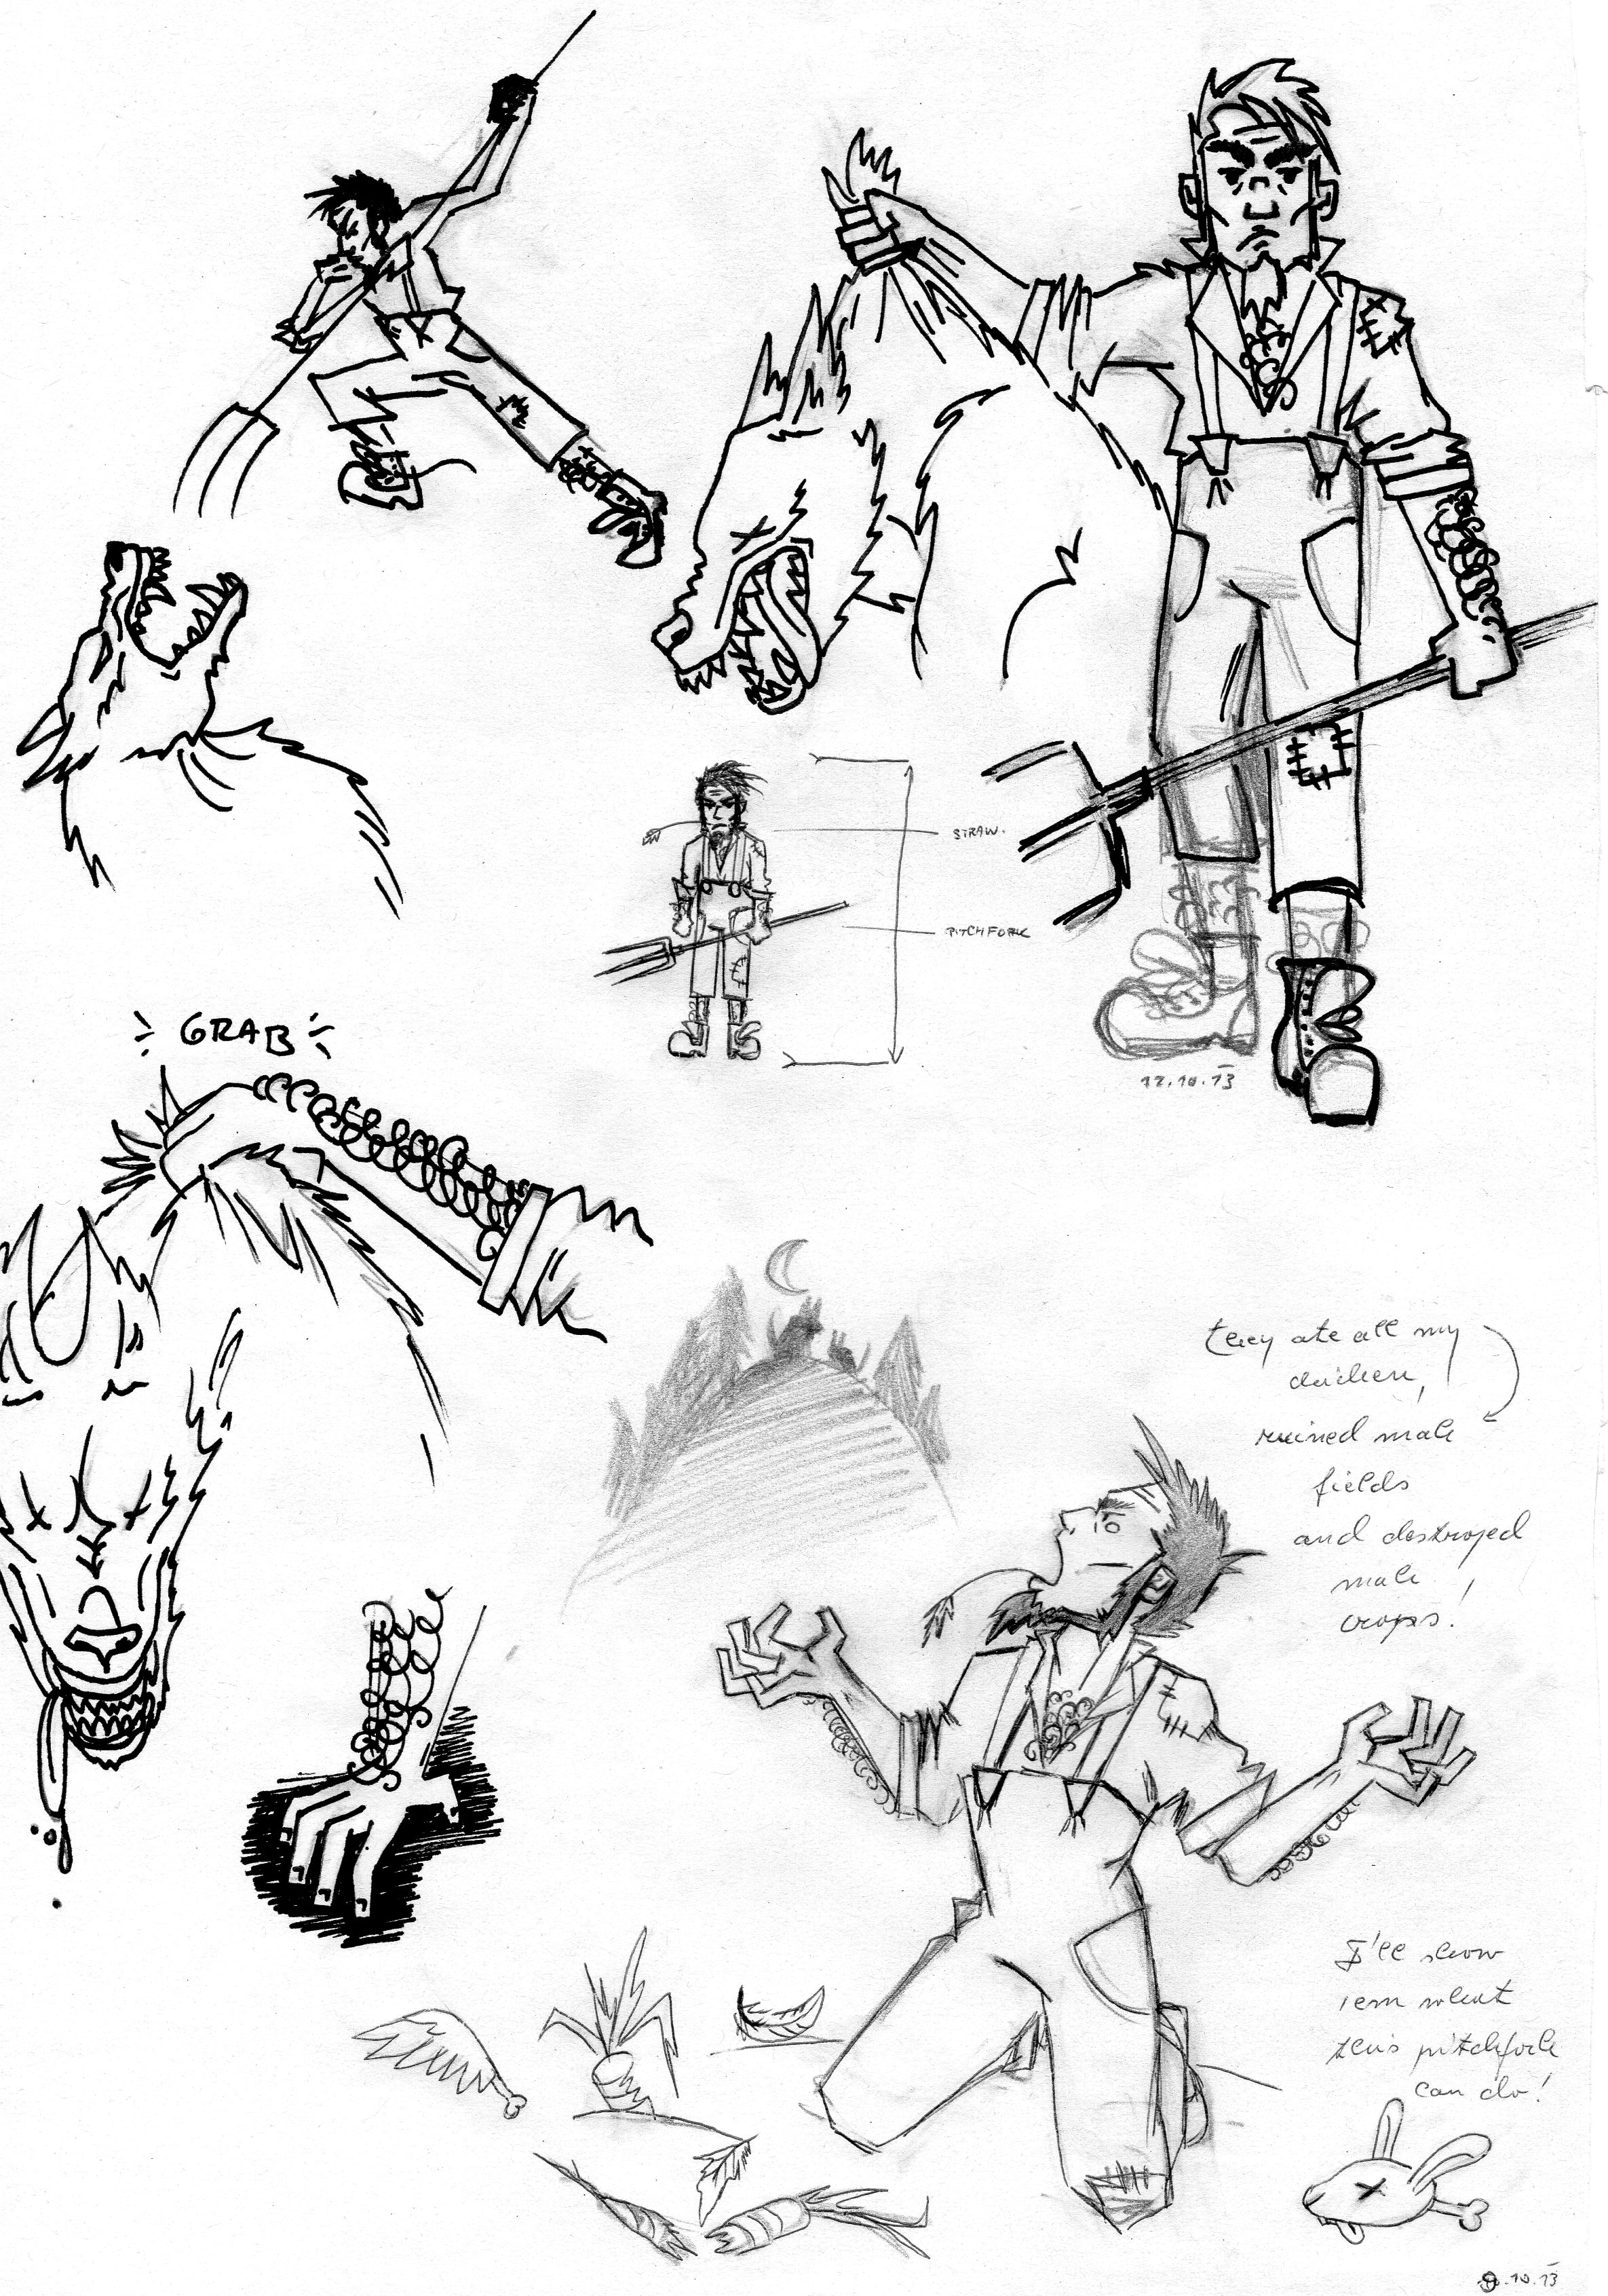 STRAW.
PITCHFORK
GRAB
12.10.13
they ate all my
chicken,
ruined mah
fields
and destroyed
mah
crops!
I'll show
'em what
this pitchfork
can do!
9.10.13